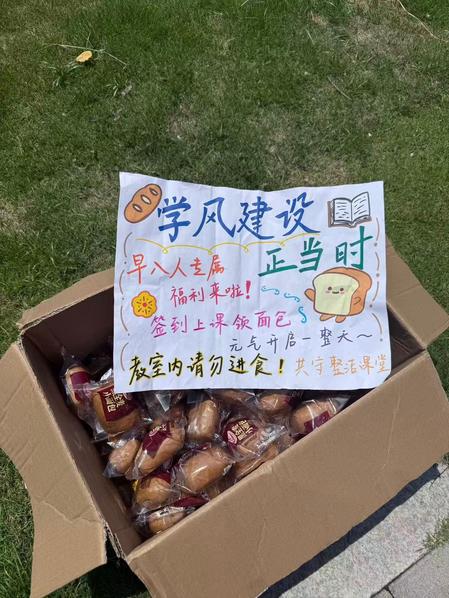 学风建设
正当时
早八人专属
福利来啦！
签到上课领面包
元气开启一整天～
教室内请勿进食！
共守整洁课堂